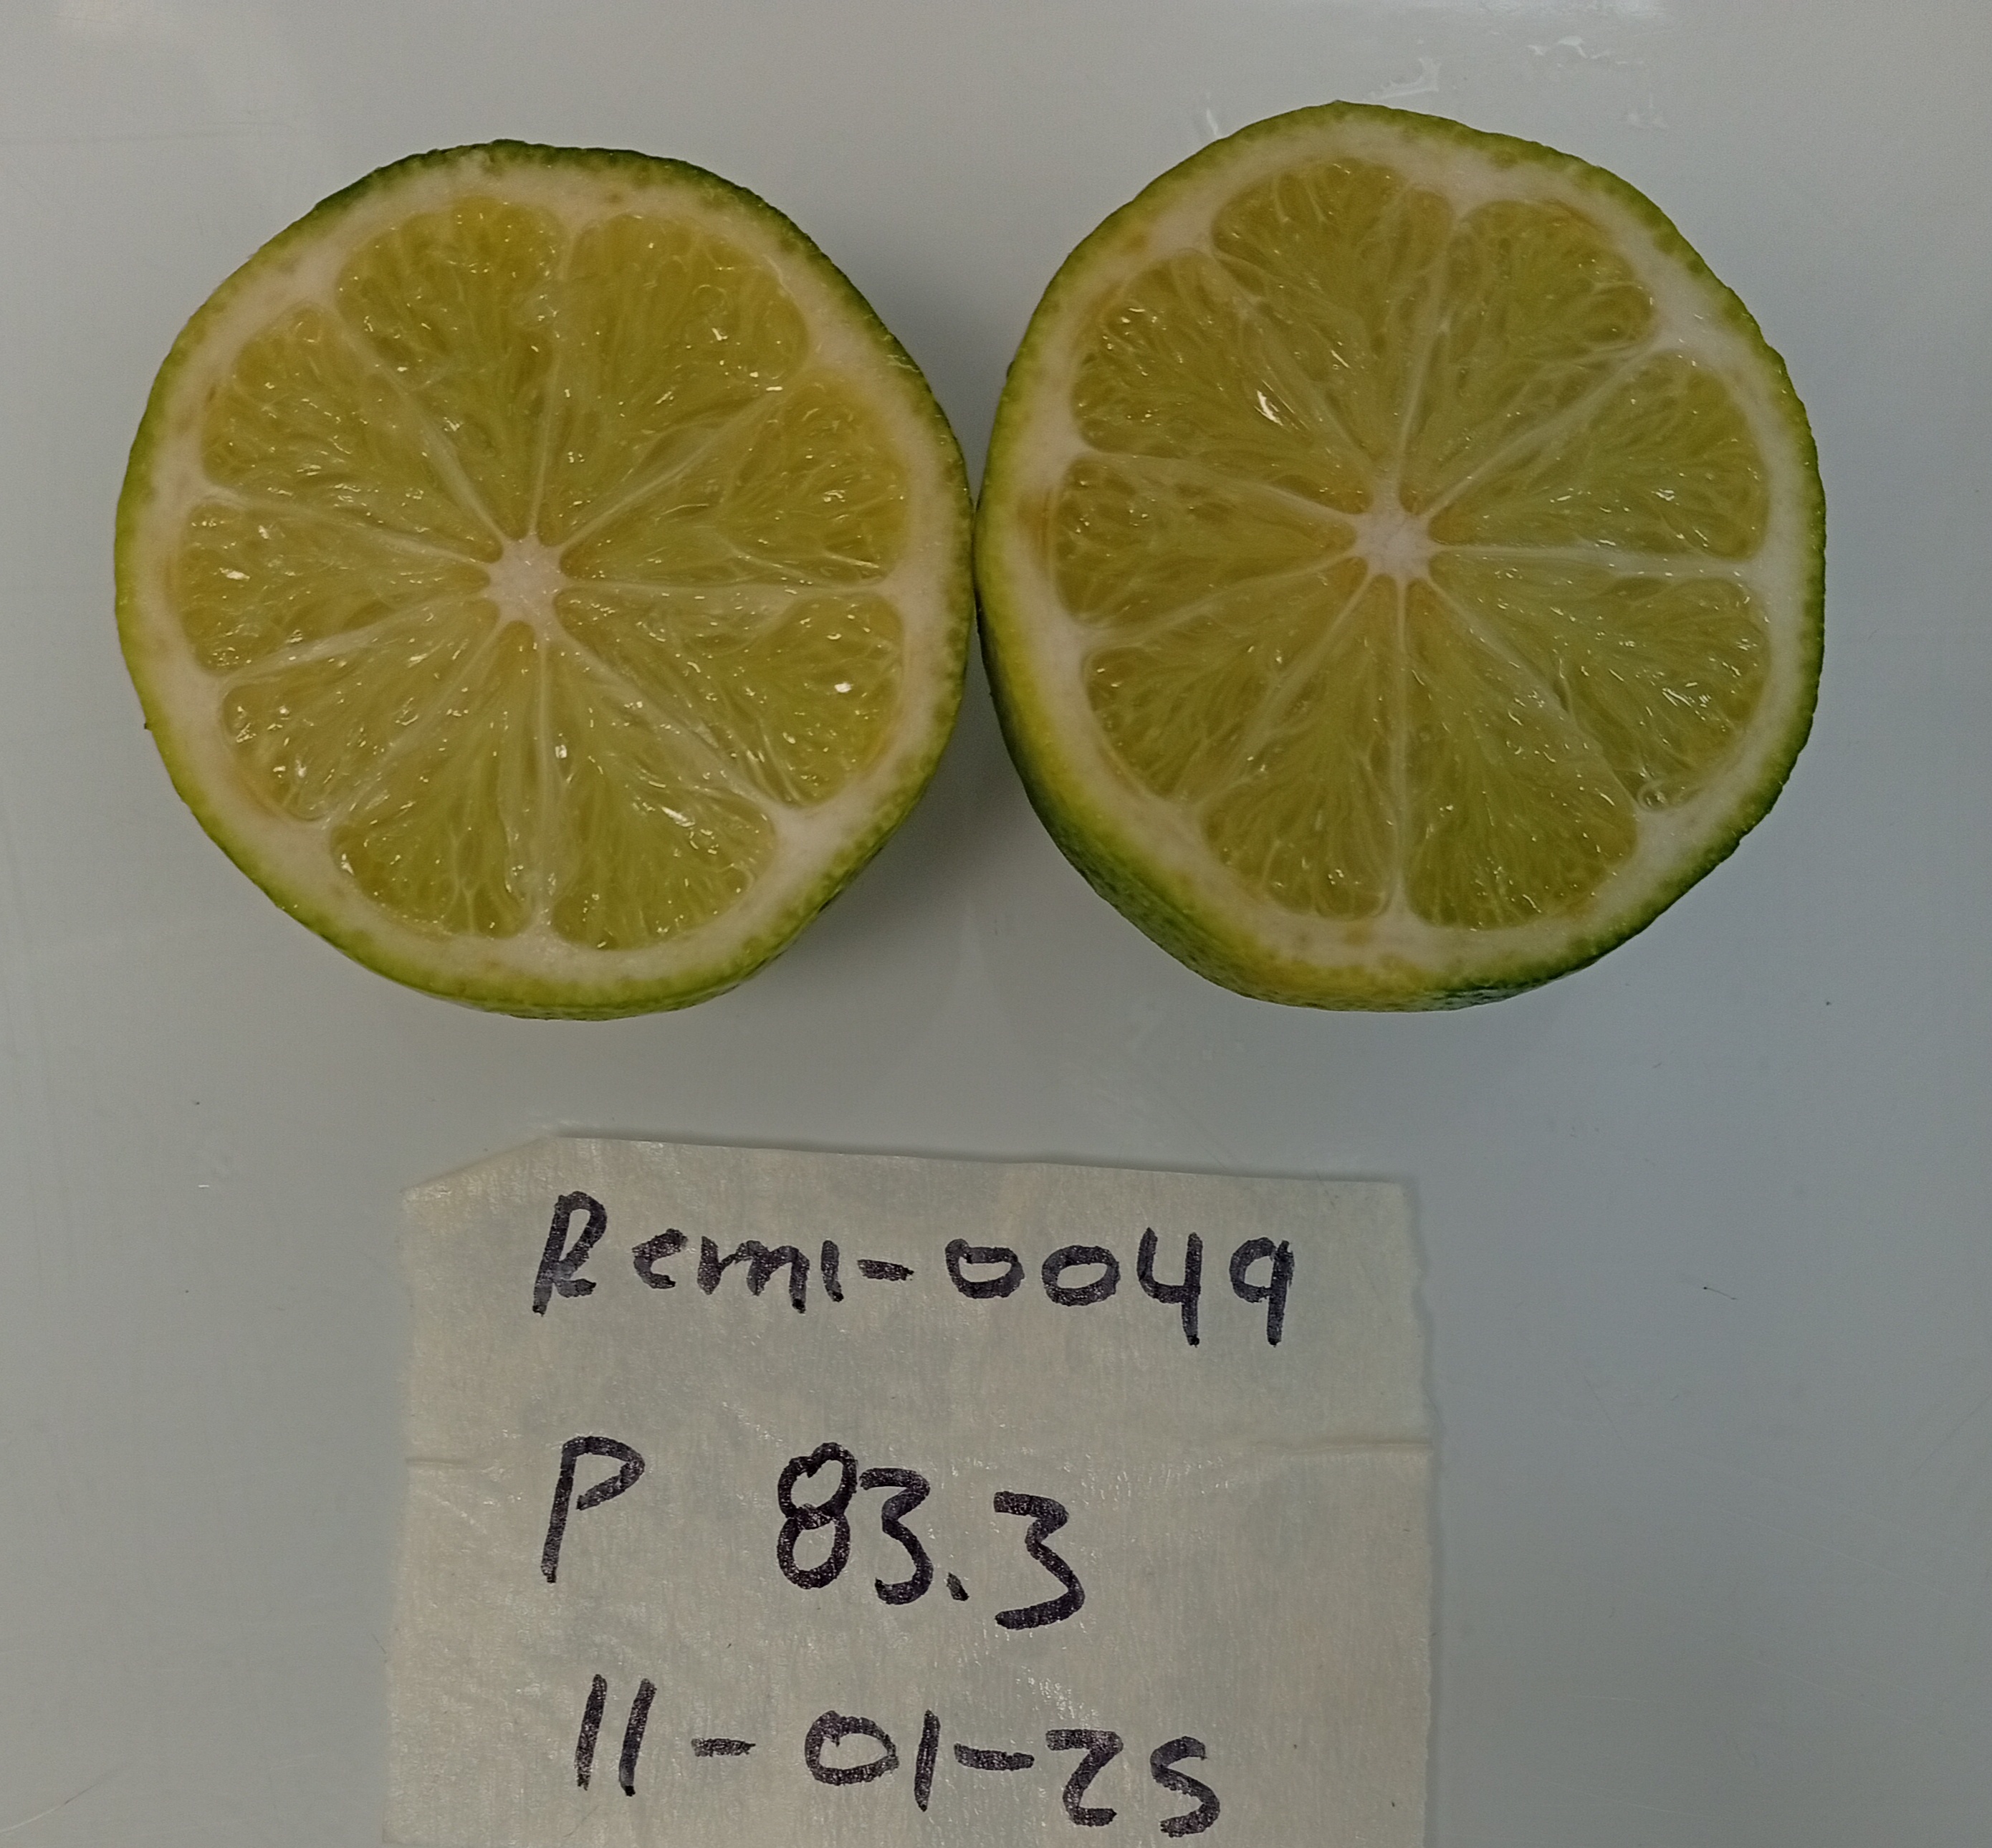 Remi-0049
P 83.3
11-01-25